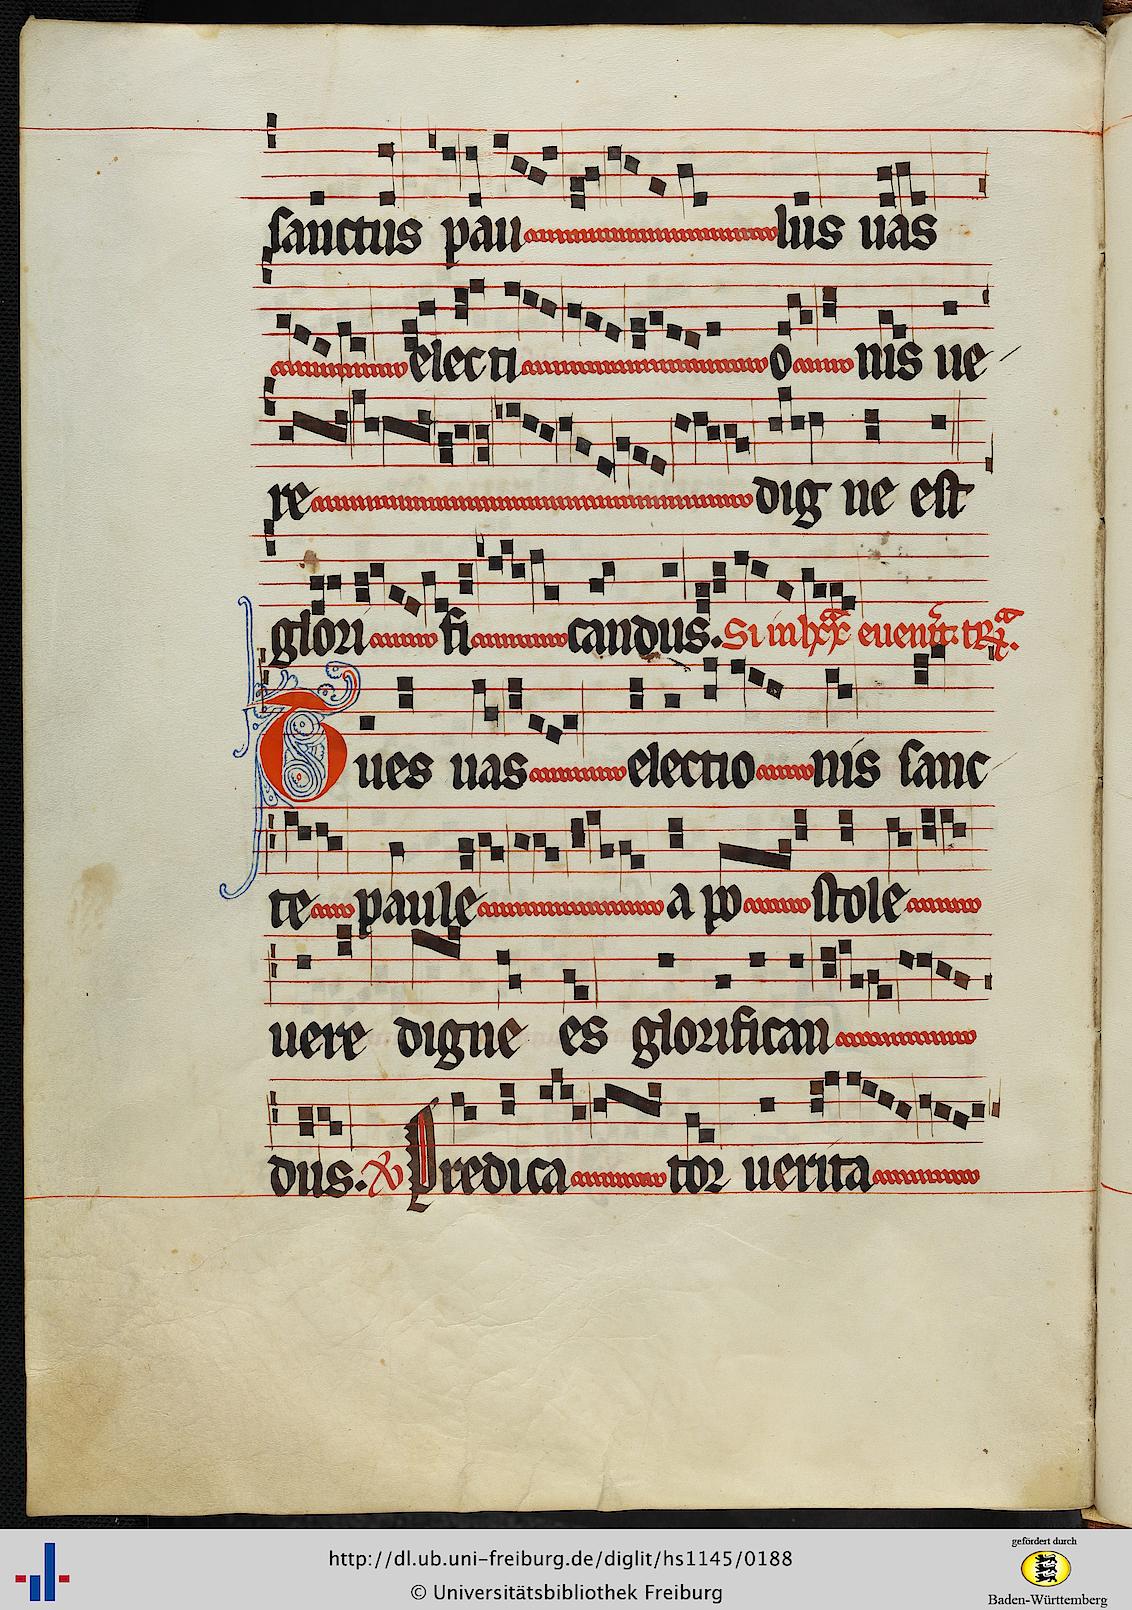 sanctus pau lus uas
electi o nis ue
re dig ne est
glori fi candus. Si in lxxª euenit: tR
Tu es uas electio nis sanc
te paule a po stole
uere digne es glorifican
dus. V Predica tor uerita
http://dl.ub.uni-freiburg.de/diglit/hs1145/0188
© Universitätsbibliothek Freiburg
gefördert durch
Baden-Württemberg